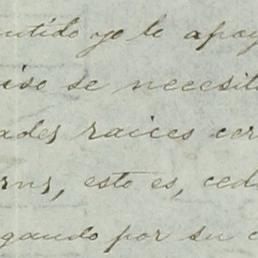 ntido yo lo apoy
iso se necesit
ades raices cer
rns, esto es, ced
gando por su c